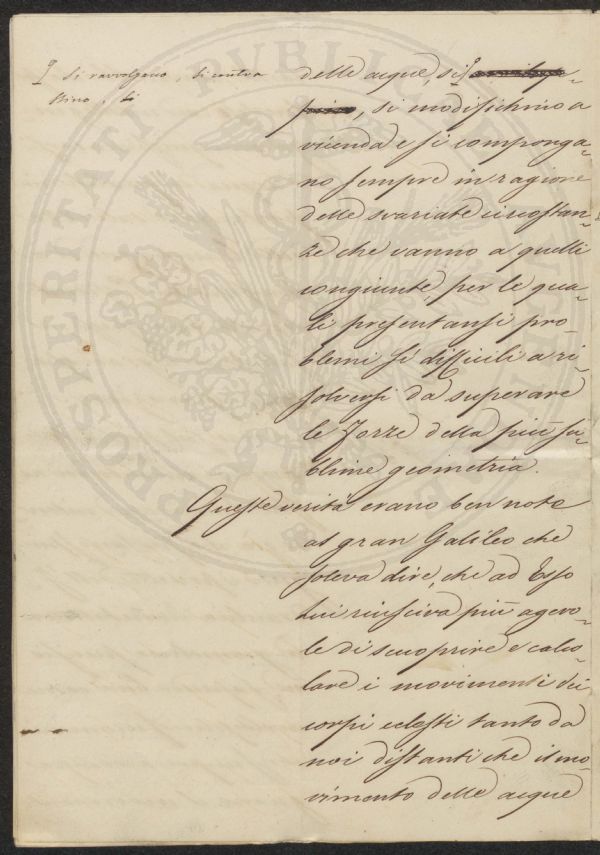 si ravvolgano, si contra
stino, si
delle acque, si
, si modifichino a
vicenda e si componga-
no sempre in ragione
delle svariate circostan-
ze che vanno a quelli
congiunte, per le qua-
li presentansi pro-
blemi sì difficili a ri-
solversi da superare
le forze della più su-
blime geometria.
Queste verità erano ben note
al gran Galileo che
soleva dire, che ad Esso
lui riusciva più agevo-
le di scuoprire e calco-
lare i movimenti dei
corpi celesti tanto da
noi distanti che il mo-
vimento delle acque
PROSPERITATI PUBLICAE